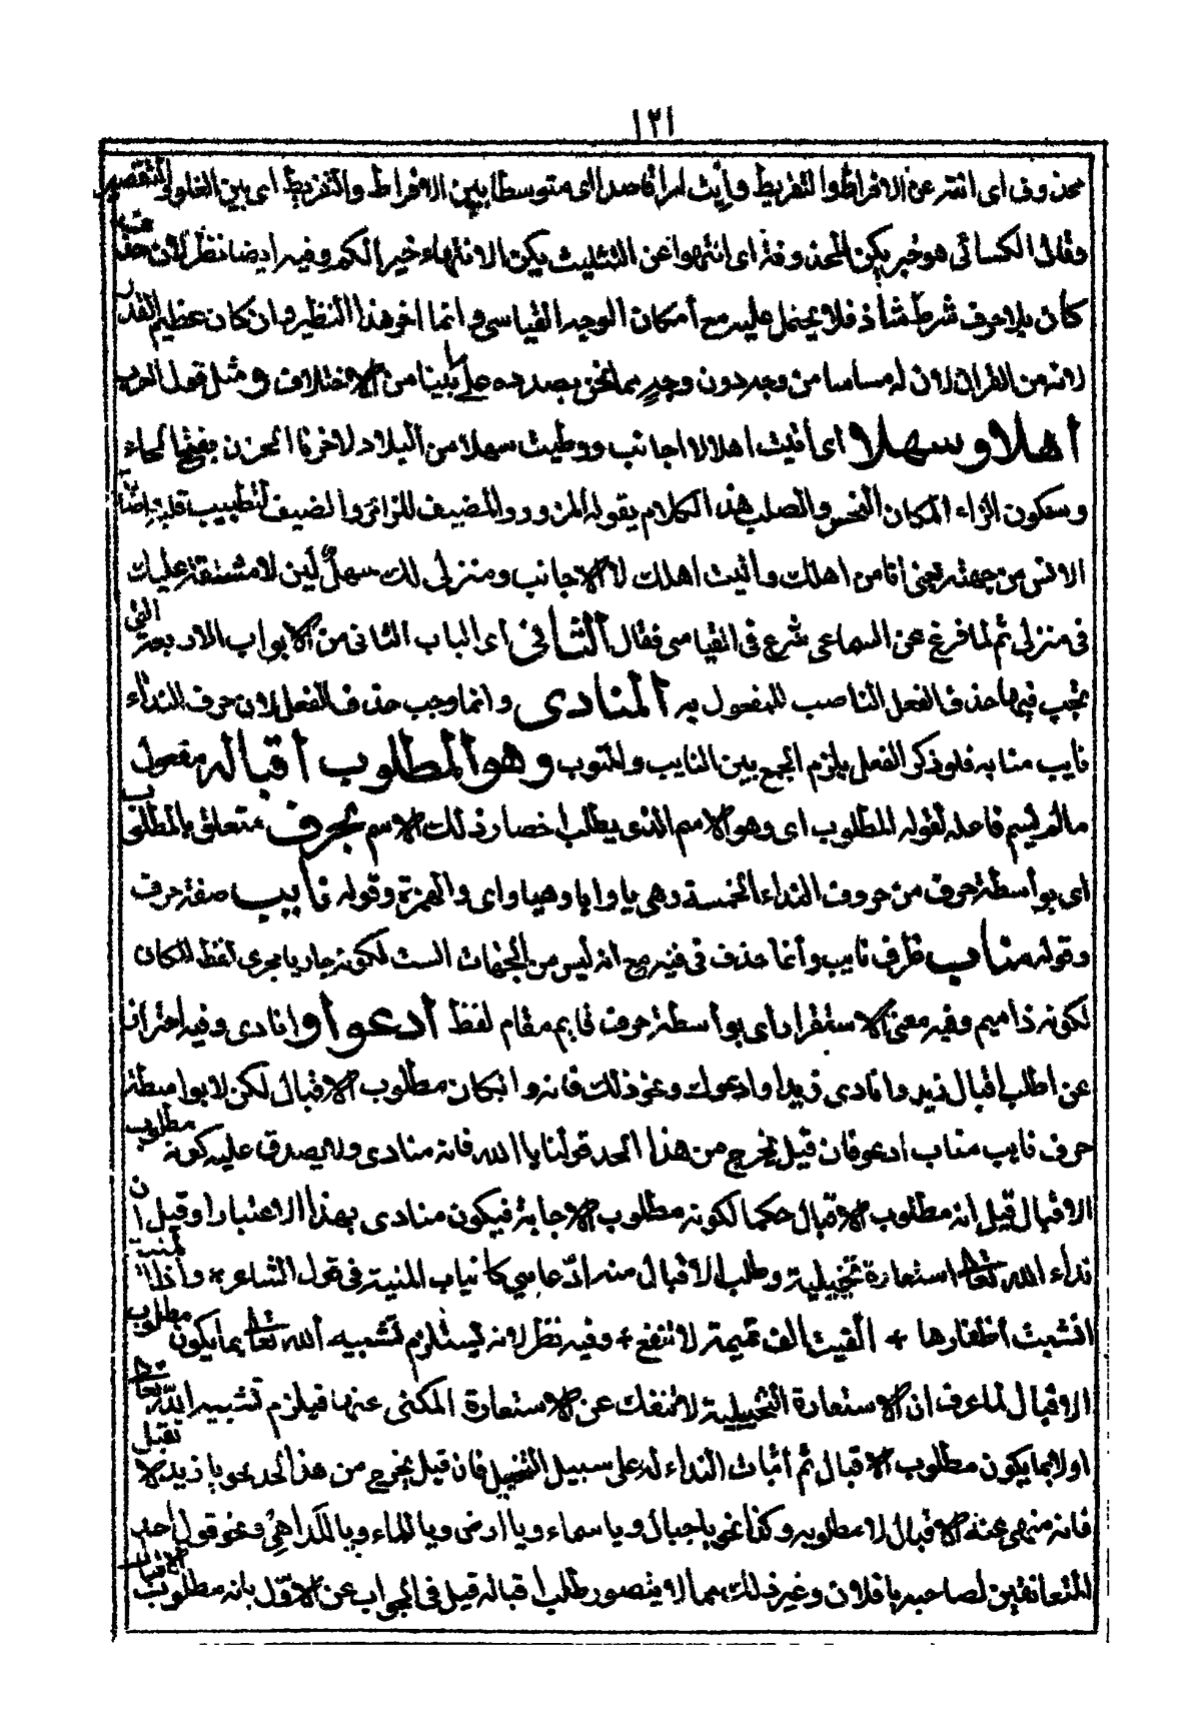 ١٢١
محذوف اى انته عن الافراط والتفريط وأيت امرا قاصدا اى متوسطا بين الافراط والتفريط اى بين الغلو والتقصير
وقال الكسائى هو خبر يكن المحذوفة اى انتهوا عن التثليث يكن الانتهاء خيرا لكم وفيه ايضا نظر لان حذف
كان بلا حرف شرط شاذ فلا يحمل عليه مع أمكان الوجه القياسى وانما اخر هذا النظير وان كان عظيم القدر
لانه من القران لان له مساسا من وجه دون وجه بما نحن بصدده على بينا من الاختلاف ومثل قول العرب
أهلا وسهلا اى اتيت اهلا لا اجانب ووطيت سهلا من البلاد لا حزنا الحزن بفتح الحاء
وسكون الزاء المكان الخشن والصلب هذا الكلام يقوله المزور والمضيف للزائر والضيف لتطييب قلبه
الانس من جهته يعنى انا من اهلك وأتيت اهلك لا الاجانب ومنزلى لك سهل لين لا مشقة عليك
فى منزلى ثم لما فرغ عن السماعى شرع فى القياسى فقال الثانى اى الباب الثانى من الابواب الاربعة التى
يجب فيها حذف الفعل الناصب للمفعول به المنادى وانما وجب حذف الفعل لان حرف النداء
نايب منابه فلو ذكر الفعل يلزم الجمع بين النايب والمنوب وهو المطلوب أقباله مفعول
مالم يسم فاعله لقوله المطلوب اى وهو الاسم الذى يطلب احضار ذلك الاسم بحرف متعلق بالمطلوب
اى بواسطة حرف من حروف النداء الخمسة وهى يا وايا وهيا واى والهمزة وقوله نايب صفة حرف
وقوله مناب ظرف نايب وأنما حذف فى فيه مع انه ليس من الجهات الست لكونه جاريا مجرى لفظ المكان
لكونه ذا ميم وفيه معنى الاستقرار اى بواسطة حرف قايم مقام لفظ أدعو او انادى وفيه احتراز
عن اطلب اقبال زيد وانادى زيدا وادعوك ونحو ذلك فانه وانكان مطلوب الاقبال لكن لا بواسطة
حرف نايب مناب ادعو فان قيل يخرج من هذا الحد قولنا يا الله فانه منادى ولا يصدق عليه كونه مطلوب
الاقبال قيل انه مطلوب الاقبال حكما لكونه مطلوب الاجابة فيكون منادى بهذا الاعتبار او قيل ان
نداء الله تعالى استعارة تخييلية وطلب الاقبال منه ادّعاىى كانياب المنية فى قول الشاعر * وأذا المنية
انشبت أظفارها + الفيت الف تميمة لا تنفع + وفيه نظر لانه يستلزم تشبيه الله تعالى بما يكون مطلوب
الاقبال لما عرف ان الاستعارة التخييلية لا تنفك عن الاستعارة المكنى عنها فيلزم تشبيه الله تعالى
اولا بما يكون مطلوب الاقبال ثم أثبات النداء له على سبيل التخييل فان قيل يخرج من هذا الحد نحو يا زيد لا تقبل
فانه منهى عنه الاقبال لا مطلوبه وكذا نحو يا جبال ويا سماء ويا ارض ويا للماء ويا للدّواهى ونحو قول احد
المتعانقين لصاحبه يا فلان وغير ذلك مما لا يتصور طلب اقباله قيل فى الجواب عن الاوّل بانه مطلوب الاقبال